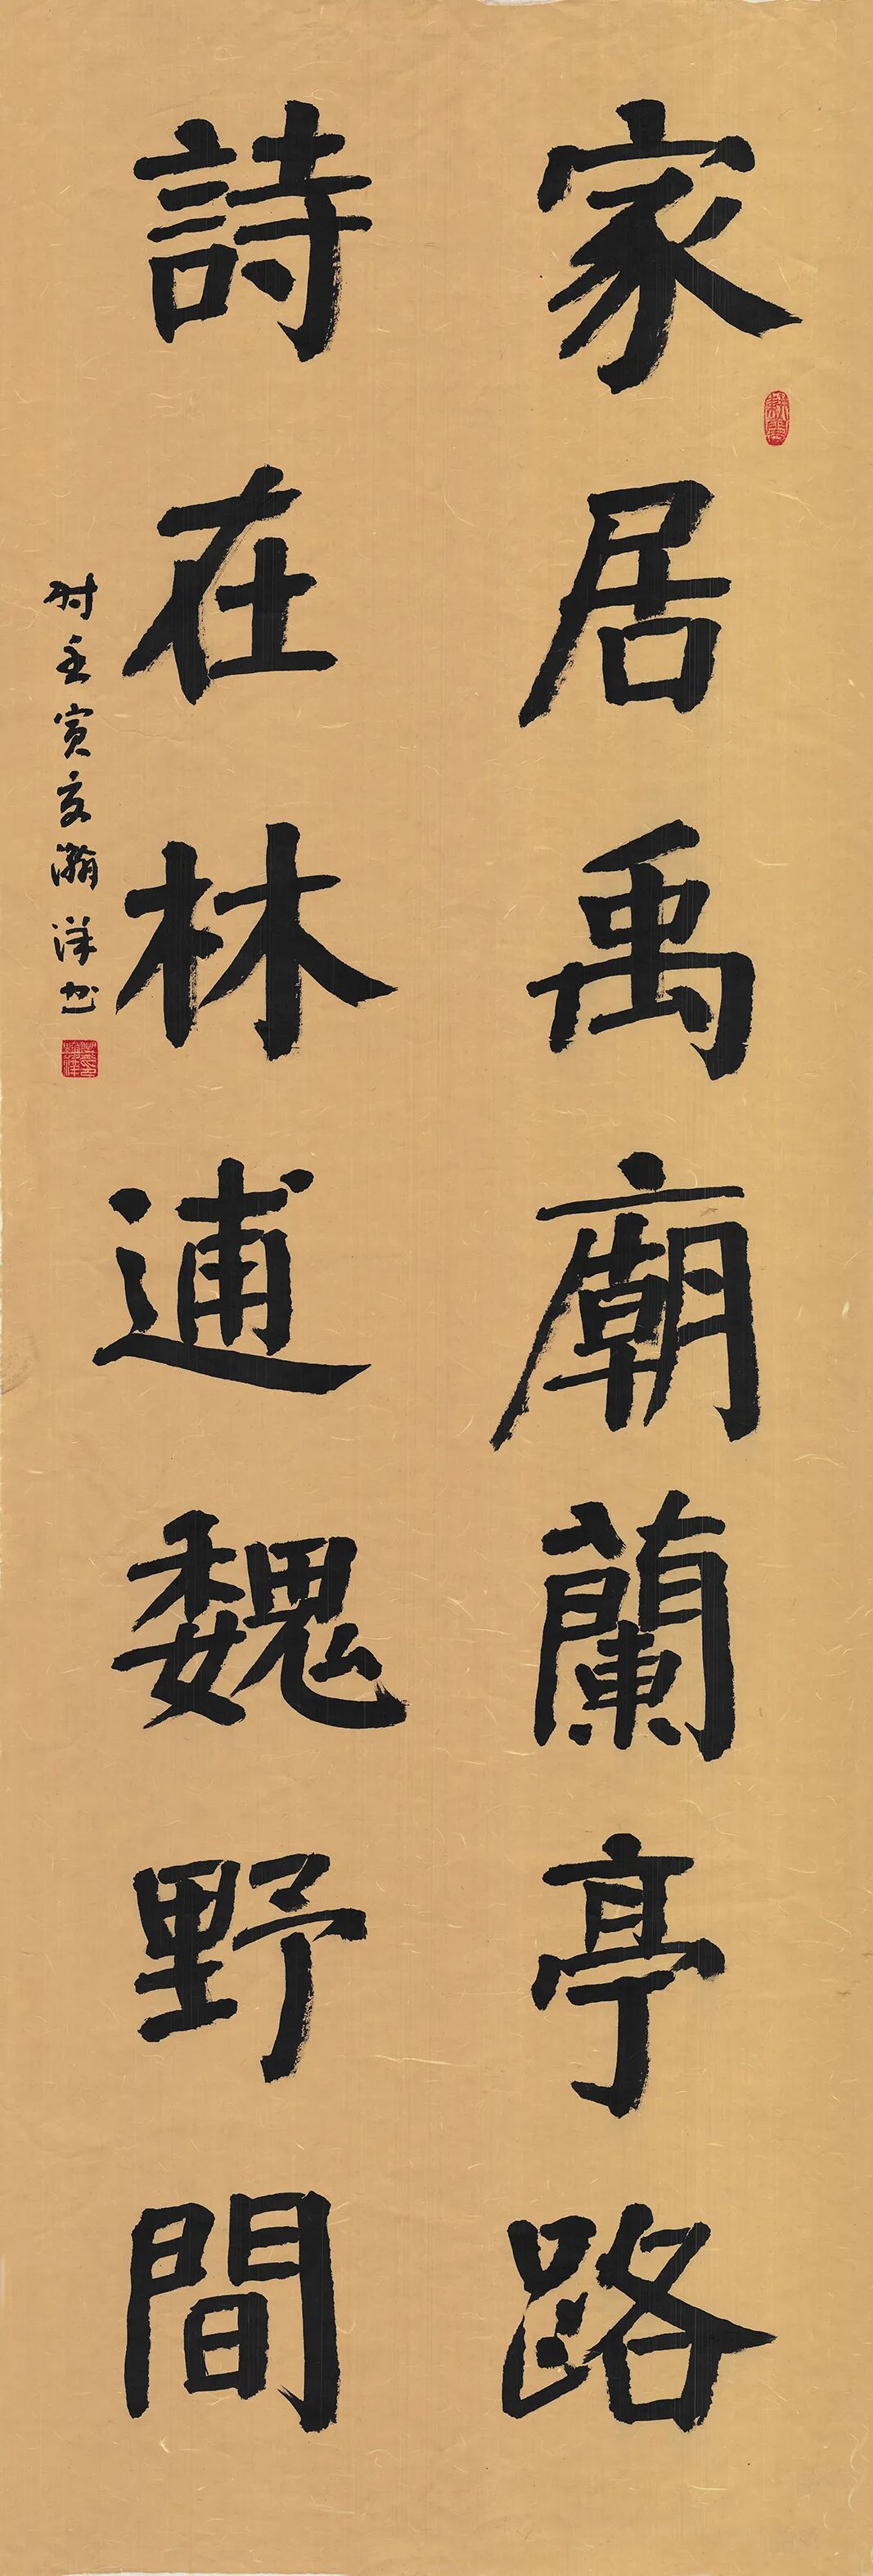 家居禹廟蘭亭路
詩在林逋魏野間
时壬寅夏瀚洋书